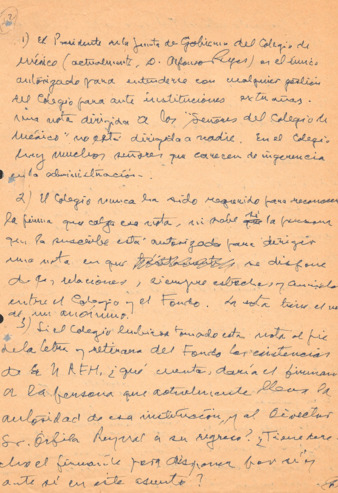 1) El Presidente de la Junta de Gobierno del Colegio de
México (actualmente, D. Alfonso Reyes) es el único
autorizado para entenderse con cualquier gestión
del Colegio para ante instituciones extrañas.
Una nota dirigida a los "Señores del Colegio de
México" no está dirigida a nadie. En el Colegio
hay muchos señores que carecen de ingerencia
en la administración.
2) El Colegio nunca ha sido requerido para reconocer
la firma que calza esa nota, ni sabe si la persona
que la suscribe está autorizada para dirigir
una nota en que se dispone
de las relaciones, siempre estrechas y amistosas
entre el Colegio y el Fondo. La nota tiere el
de un anónimo.
3) Si el Colegio hubiera tomado esta nota al pie
de la letra y retirara del Fondo las existencias
de la NRFH, ¿qué cuentas daría el firmante
a la persona que actualmente lleva la
autoridad de esa institución, y al Director
Sr. Orfila Reynal a su regreso? ¿Tiene dere
cho el firmante para disponer por sí y
ante sí en este asunto?